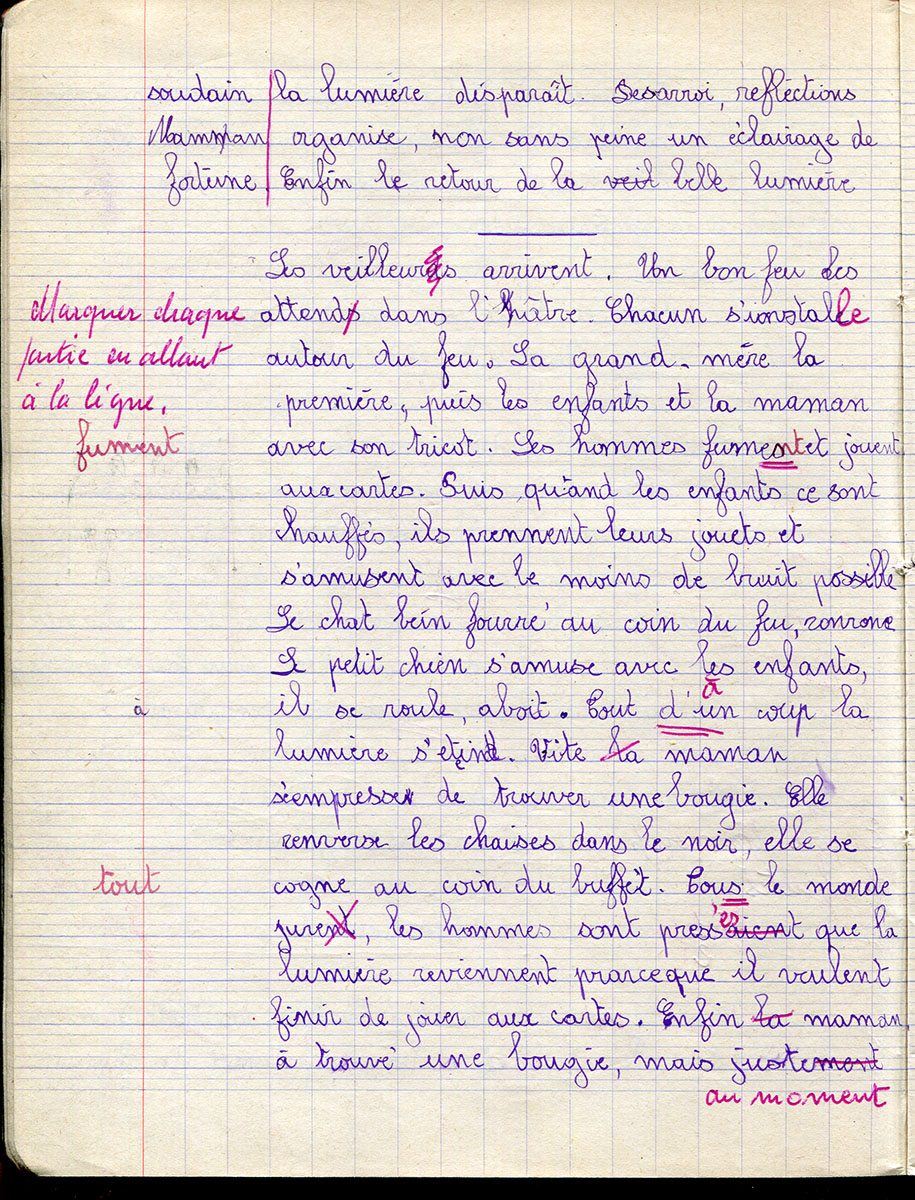 soudain la lumière disparaît. Desarroi, refléctions
Mamman organise, non sans peine un éclairage de
fortune Enfin le retour de la veil belle lumière
Les veilleurs arrivent. Un bon feu les
Marquer chaque attend dans l'hâtre. Chacun s'installe
partie en allant autour du feu. La grand-mère la
à la ligne. première, puis les enfants et la maman
fument avec son tricot. Les hommes fument et jouent
aux cartes. Puis quand les enfants ce sont
chauffés, ils prennent leurs jouets et
s'amusent avec le moins de bruit possible
Le chat bein fourré au coin du feu, ronrone
Le petit chien s'amuse avec les enfants,
à
à il se roule, aboit. Tout d'un coup la
lumière s'éteint. Vite la maman
s'empresse de trouver une bougie. Elle
renverse les chaises dans le noir, elle se
tout cogne au coin du buffet. Tous le monde
és
jurent, les hommes sont pressaient que la
lumière reviennent prarceque il veulent
finir de jouer aux cartes. Enfin la maman,
à trouvé une bougie, mais justement
au moment